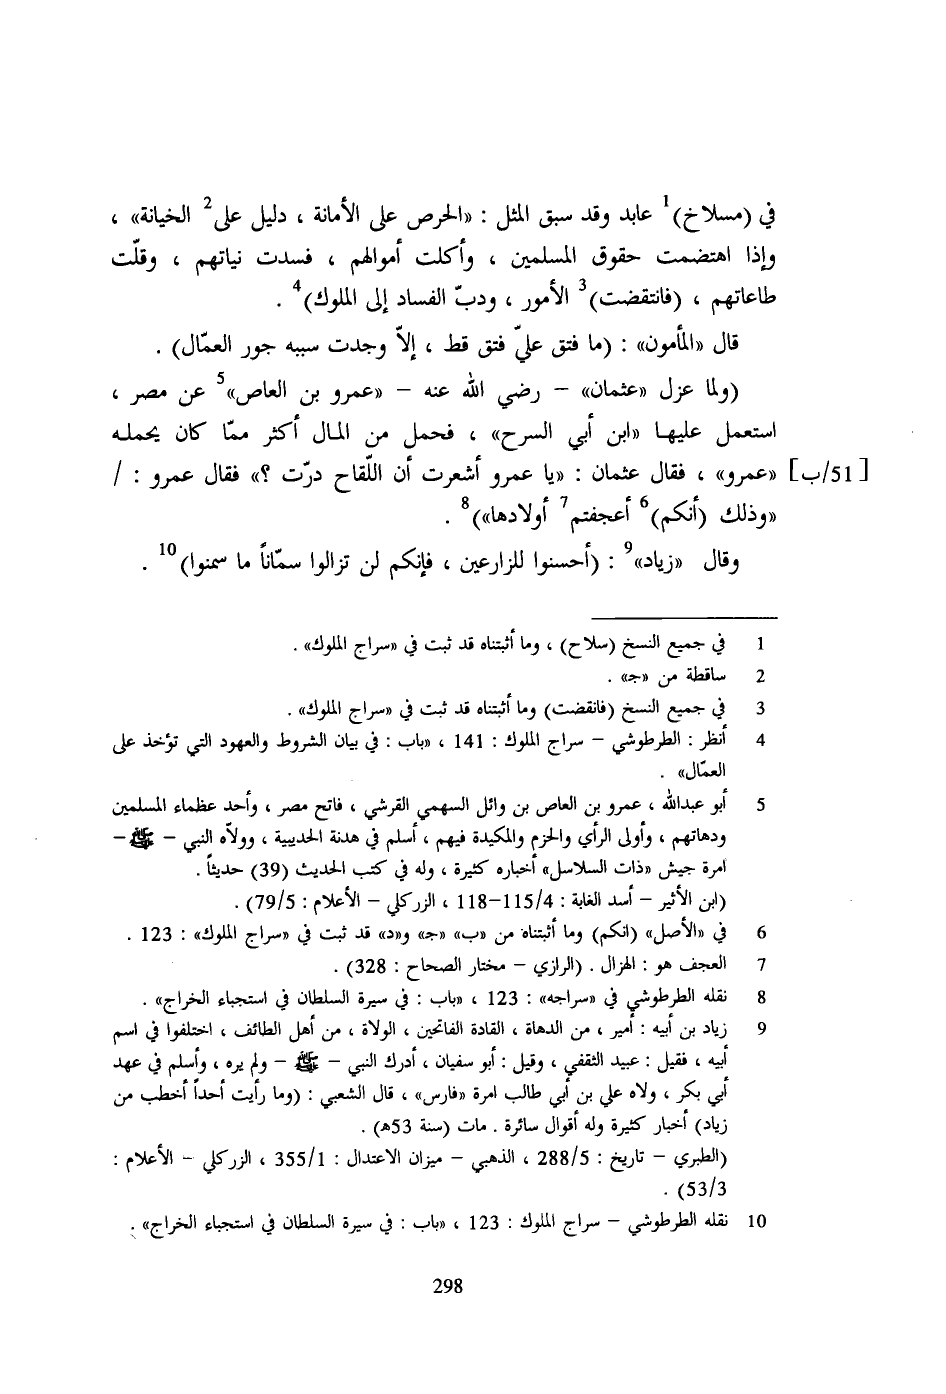 في (مسلاخ)1 عابد وقد سبق المثل : «الحرص على الأمانة ، دليل على2 الخيانة» ،
وإذا اهتضمت حقوق المسلمين ، وأكلت أموالهم ، فسدت نياتهم ، وقلّت
طاعاتهم ، (فانتقضت)3 الأمور ، ودبّ الفساد إلى الملوك)4 .
قال «المأمون» : (ما فتق عليّ فتق قط ، إلاّ وجدت سببه جور العمّال) .
(ولما عزل «عثمان» – رضي الله عنه – «عمرو بن العاص»5 عن مصر ،
استعمل عليها «ابن أبي السرح» ، فحمل من المال أكثر ممّا كان يحمله
[51/ب] «عمرو» ، فقال عثمان : «يا عمرو أشعرت أن اللّقاح درّت ؟» فقال عمرو : /
«وذلك (أنكم)6 أعجفتم7 أولادها»)8 .
وقال «زياد»9 : (أحسنوا للزارعين ، فإنكم لن تزالوا سمّاناً ما سمنوا)10 .
1 في جميع النسخ (سلاح) ، وما أثبتناه قد ثبت في «سراج الملوك» .
2 ساقطة من «جـ» .
3 في جميع النسخ (فانقضت) وما أثبتناه قد ثبت في «سراج الملوك» .
4 أنظر : الطرطوشي – سراج الملوك : 141 ، «باب : في بيان الشروط والعهود التي تؤخذ على
العمّال» .
5 أبو عبدالله ، عمرو بن العاص بن وائل السهمي القرشي ، فاتح مصر ، وأحد عظماء المسلمين
ودهاتهم ، وأولى الرأي والحزم والمكيدة فيهم ، أسلم في هدنة الحديبية ، وولاّه النبي – ﷺ –
امرة جيش «ذات السلاسل» أخباره كثيرة ، وله في كتب الحديث (39) حديثاً .
(ابن الأثير – أسد الغابة : 115/4–118 ، الزركلي – الأعلام : 79/5) .
6 في «الأصل» (انكم) وما أثبتناه من «ب» «جـ» و«د» قد ثبت في «سراج الملوك» : 123 .
7 العجف هو : الهزال . (الرازي – مختار الصحاح : 328) .
8 نقله الطرطوشي في «سراجه» : 123 ، «باب : في سيرة السلطان في استجباء الخراج» .
9 زياد بن أبيه : أمير ، من الدهاة ، القادة الفاتحين ، الولاة ، من أهل الطائف ، اختلفوا في اسم
أبيه ، فقيل : عبيد الثقفي ، وقيل : أبو سفيان ، أدرك النبي – ﷺ – ولم يره ، وأسلم في عهد
أبي بكر ، ولاه علي بن أبي طالب امرة «فارس» ، قال الشعبي : (وما رأيت أحداً أخطب من
زياد) أخبار كثيرة وله أقوال سائرة . مات (سنة 53هـ) .
(الطبري – تاريخ : 288/5 ، الذهبي – ميزان الاعتدال : 355/1 ، الزركلي – الأعلام :
53/3) .
10 نقله الطرطوشي – سراج الملوك : 123 ، «باب : في سيرة السلطان في استجباء الخراج» .
298